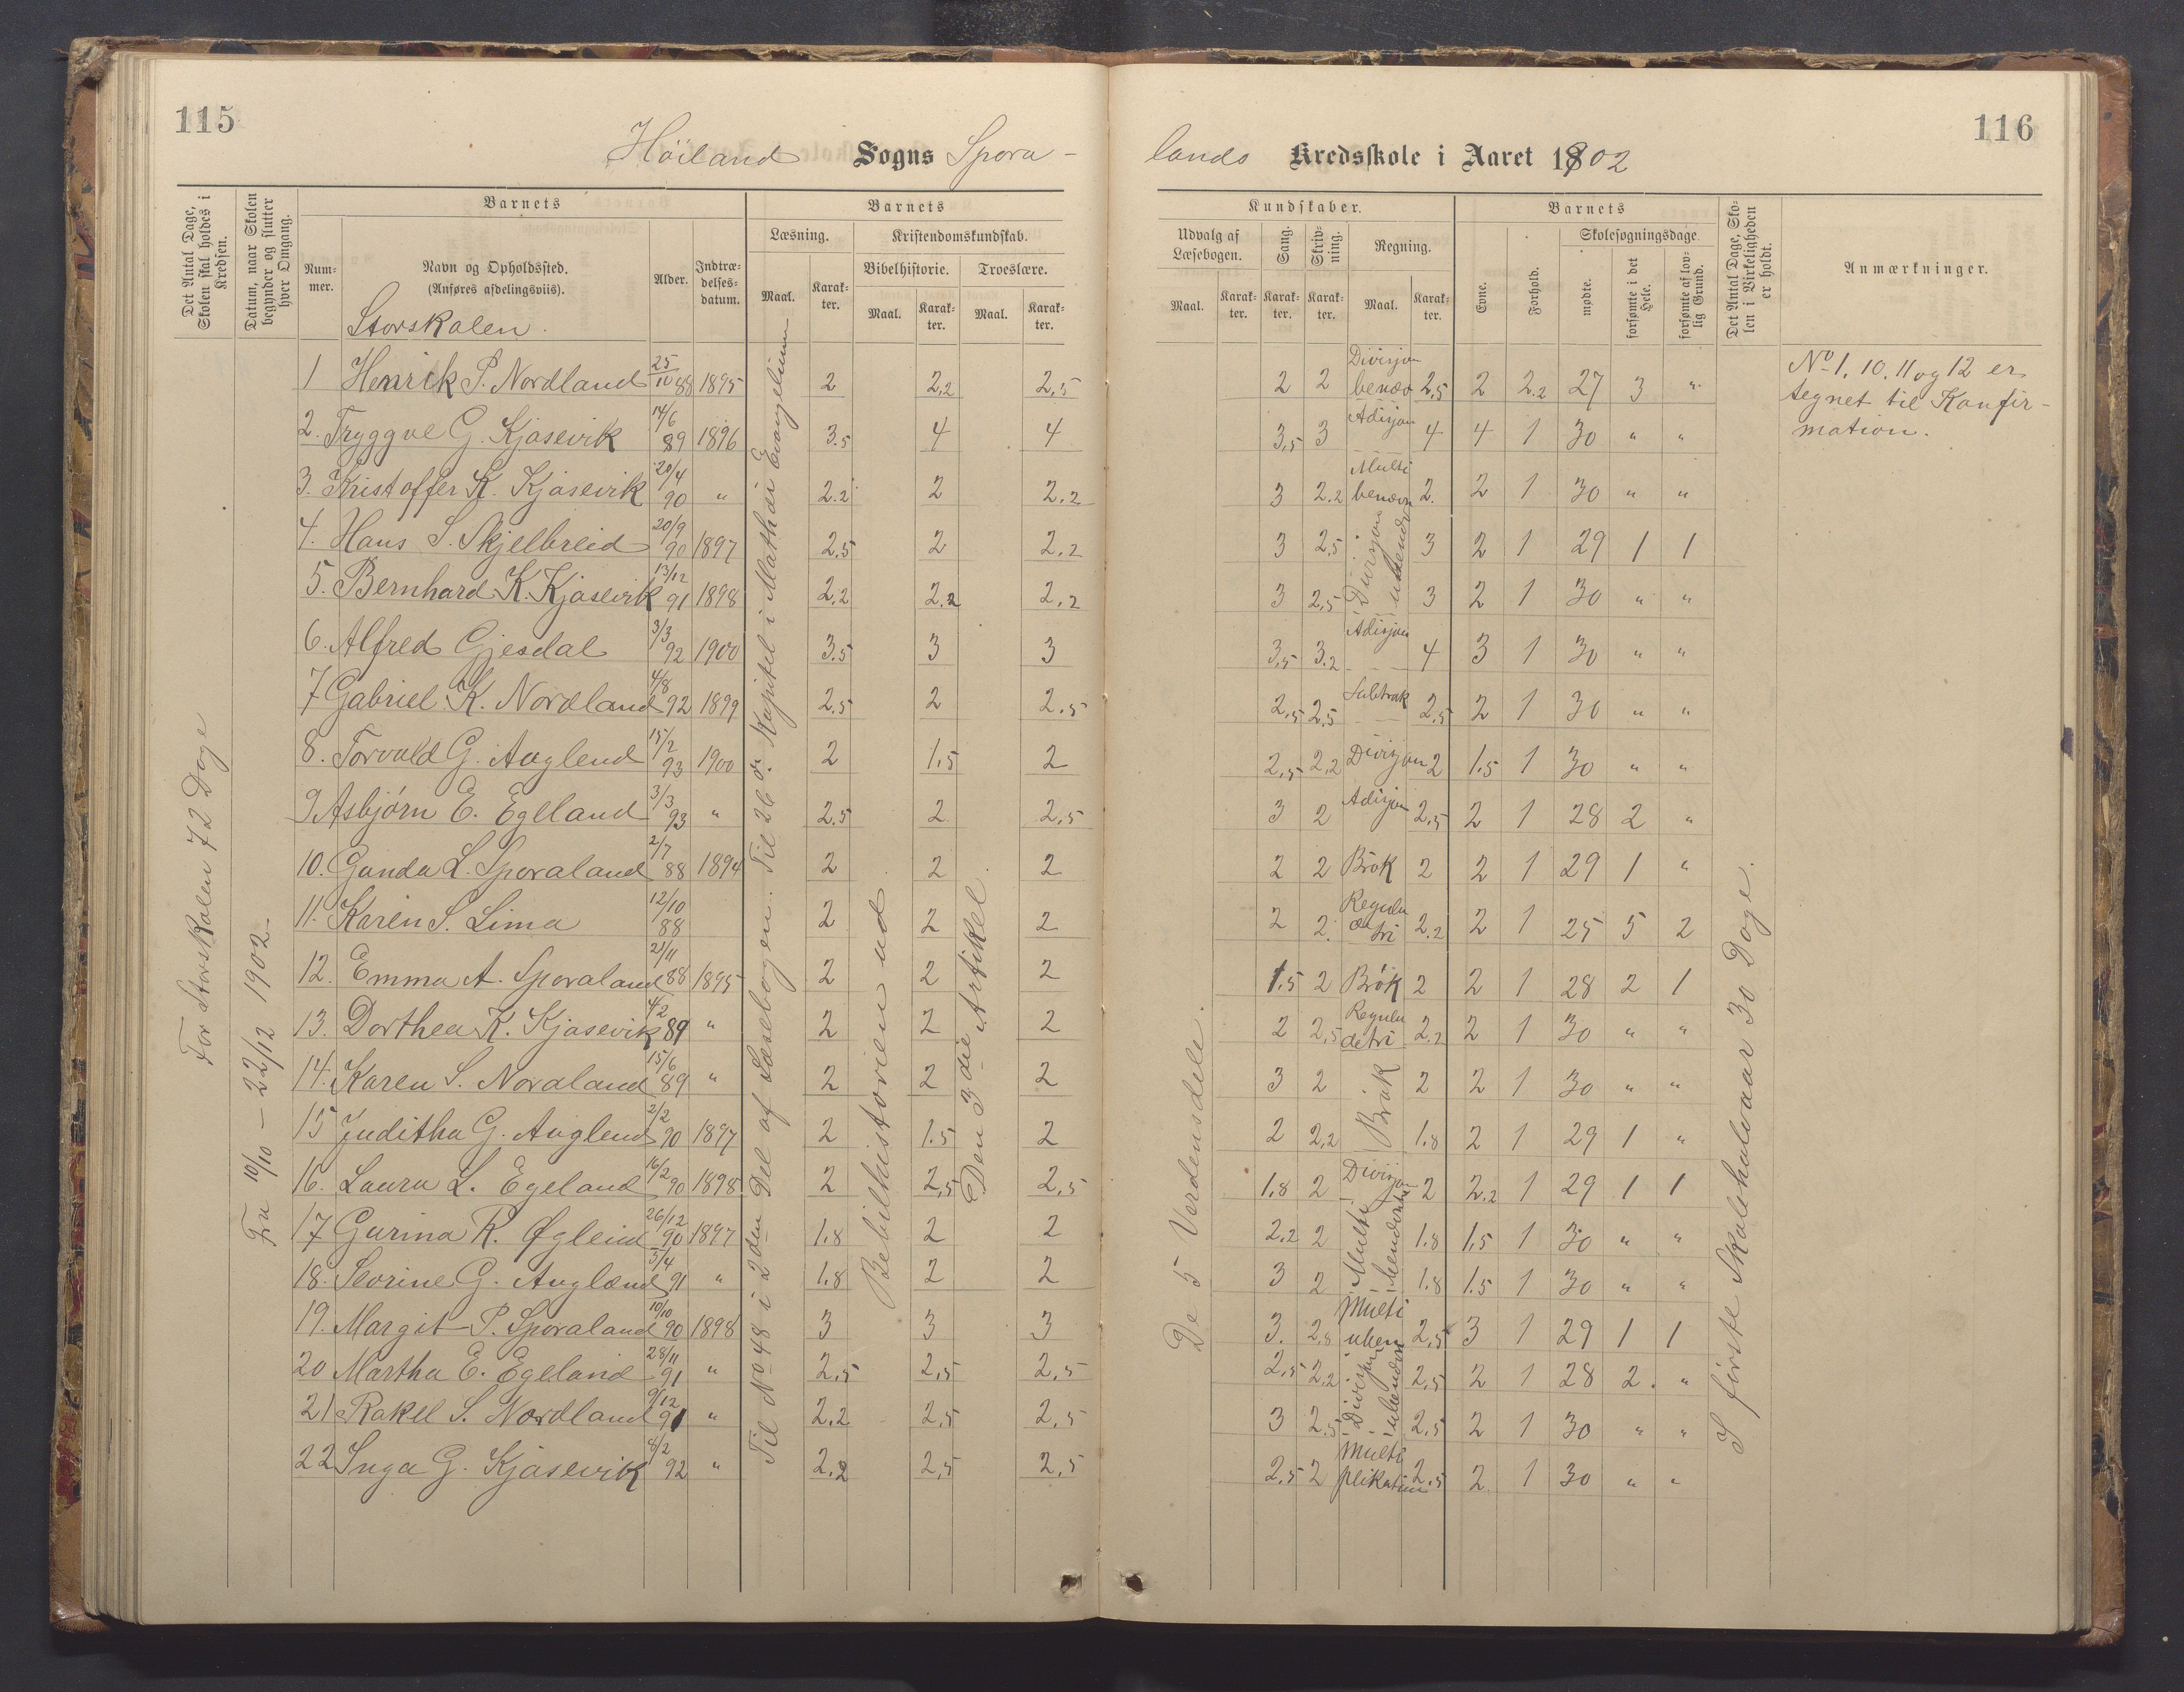 115
116
Höiland Sogns Spora-
lands Kredsskole i Aaret 1902
Det Antal Dage, Skolen skal holdes i Kredsen.
Datum, naar Skolen begynder og slutter hver Omgang.
Barnets
Nummer.
Navn og Opholdssted.
(Anføres afdelingsviis).
Alder.
Indtrædelsesdatum.
Barnets
Læsning.
Kristendomskundskab.
Bibelhistorie.
Troeslære.
Maal.
Karakter.
Maal.
Karakter.
Maal.
Karakter.
Kundskaber.
Udvalg af Læsebogen.
Sang.
Skrivning.
Regning.
Maal.
Karakter.
Karakter.
Karakter.
Maal.
Karakter.
Barnets
Evne.
Forhold.
Skolesøgningsdage.
mødte.
forsømte i det Hele.
forsømte af lovlig Grund.
Det Antal Dage, Skolen i Virkeligheden er holdt.
Anmærkninger.
Storskolen.
1 Henrik P. Nordland 25/10 88 1895 2 2,2 2,5 2 2 Divisjon benæv 2,5 2 2.2 27 3 "
2. Tryggve G. Kjosevik 14/6 89 1896 3.5 4 4 3,5 3 Adisjon 4 4 1 30 " "
3. Kristoffer K. Kjosevik 20/4 90 " 2.2 2 2.2 3 2.2 Multi benævn 2. 2 1 30 " "
4. Hans S. Skjelbreid 20/9 90 1897 2,5 2 2,2 3 2,5 Divisjon ubenævn 3 2 1 29 1 1
5. Bernhard K. Kjosevik 13/12 91 1898 2,2 2.2 2,2 3 2,5 3 2 1 30 " "
6. Alfred Gjesdal 3/3 92 1900 3.5 3 3 3,5 3.2 Adisjon 4 3 1 30 " "
7 Gabriel K. Nordland 4/8 92 1899 2.5 2 2.5 2,5 2.5 Subtrak 2,5 2 1 30 " "
8. Torvald G. Auglend 15/2 93 1900 2 1.5 2 2,5 2,2 Divisjon 2 1.5 1 30 " "
9 Asbjörn E. Egeland 3/3 93 " 2.5 2 2,5 3 2 Adisjon 2,5 2 1 28 2 "
10. Gunda L. Sporaland 2/7 88 1894 2 2 2 2 2 Brök 2 2 1 29 1 "
11. Karen S. Lima 12/10 88 2 2 2 2 2. Regula de tri 2.2 2 1 25 5 2
12. Emma A. Sporaland 21/11 88 1895 2 2 2 1.5 2 Brök 2 2 1 28 2 1
13. Dorthea K. Kjosevik 4/2 89 " 2 2 2 2 2,5 Regula de tri 2.2 2 1 30 " "
14. Karen S. Nordland 15/6 89 " 2 2 2 3 2 Brök 2 2 1 30 " "
15 Juditha G. Auglend 2/2 90 1897 2 1.5 2 2 2,2 1.8 2 1 29 1 "
16. Laura L. Egeland 16/2 90 1898 2 2,5 2,5 1.8 2 Divisjon 2 2.2 1 29 1 1
17 Gurina R. Øglend 26/12 90 1897 1.8 2 2 2.2 2 Multi benævn 1.8 1.5 1 30 " "
18. Seorine G. Auglænd 5/4 91 " 1.8 2 2 3 2 1.8 1.5 1 30 " "
19. Margit P. Sporaland 10/10 90 1898 3 3 3 3. 2,8 Multi uben 2,5 3 1 29 1 1
20 Martha E. Egeland 28/11 91 " 2,5 2,5 2,5 2,5 2,2 Divisjon ubenævn 2,5 2 1 28 2. "
21 Rakel S. Nordland 9/12 91 " 2,2 2,5 2,5 3 2,5 2,5 2 1 30 " "
22 Inga G. Kjosevik 8/2 92 " 2,2 2,5 2,5 2,5 2 Multiplikation 2,5 2. 1 30 " "
For Storskolen 72 Dage
Fra 10/10 – 22/12 1902.
Til No 48 i 2den Del af Læsebogen. Til 26de Kapitel i Mathæi Evangelium
Bebilhistorien ud.
Den 3die Artikel.
De 5 Verdensdele.
I förste Skolehalvaar 30 Dage.
No 1, 10, 11 og 12 er
tegnet til Konfir-
mation.